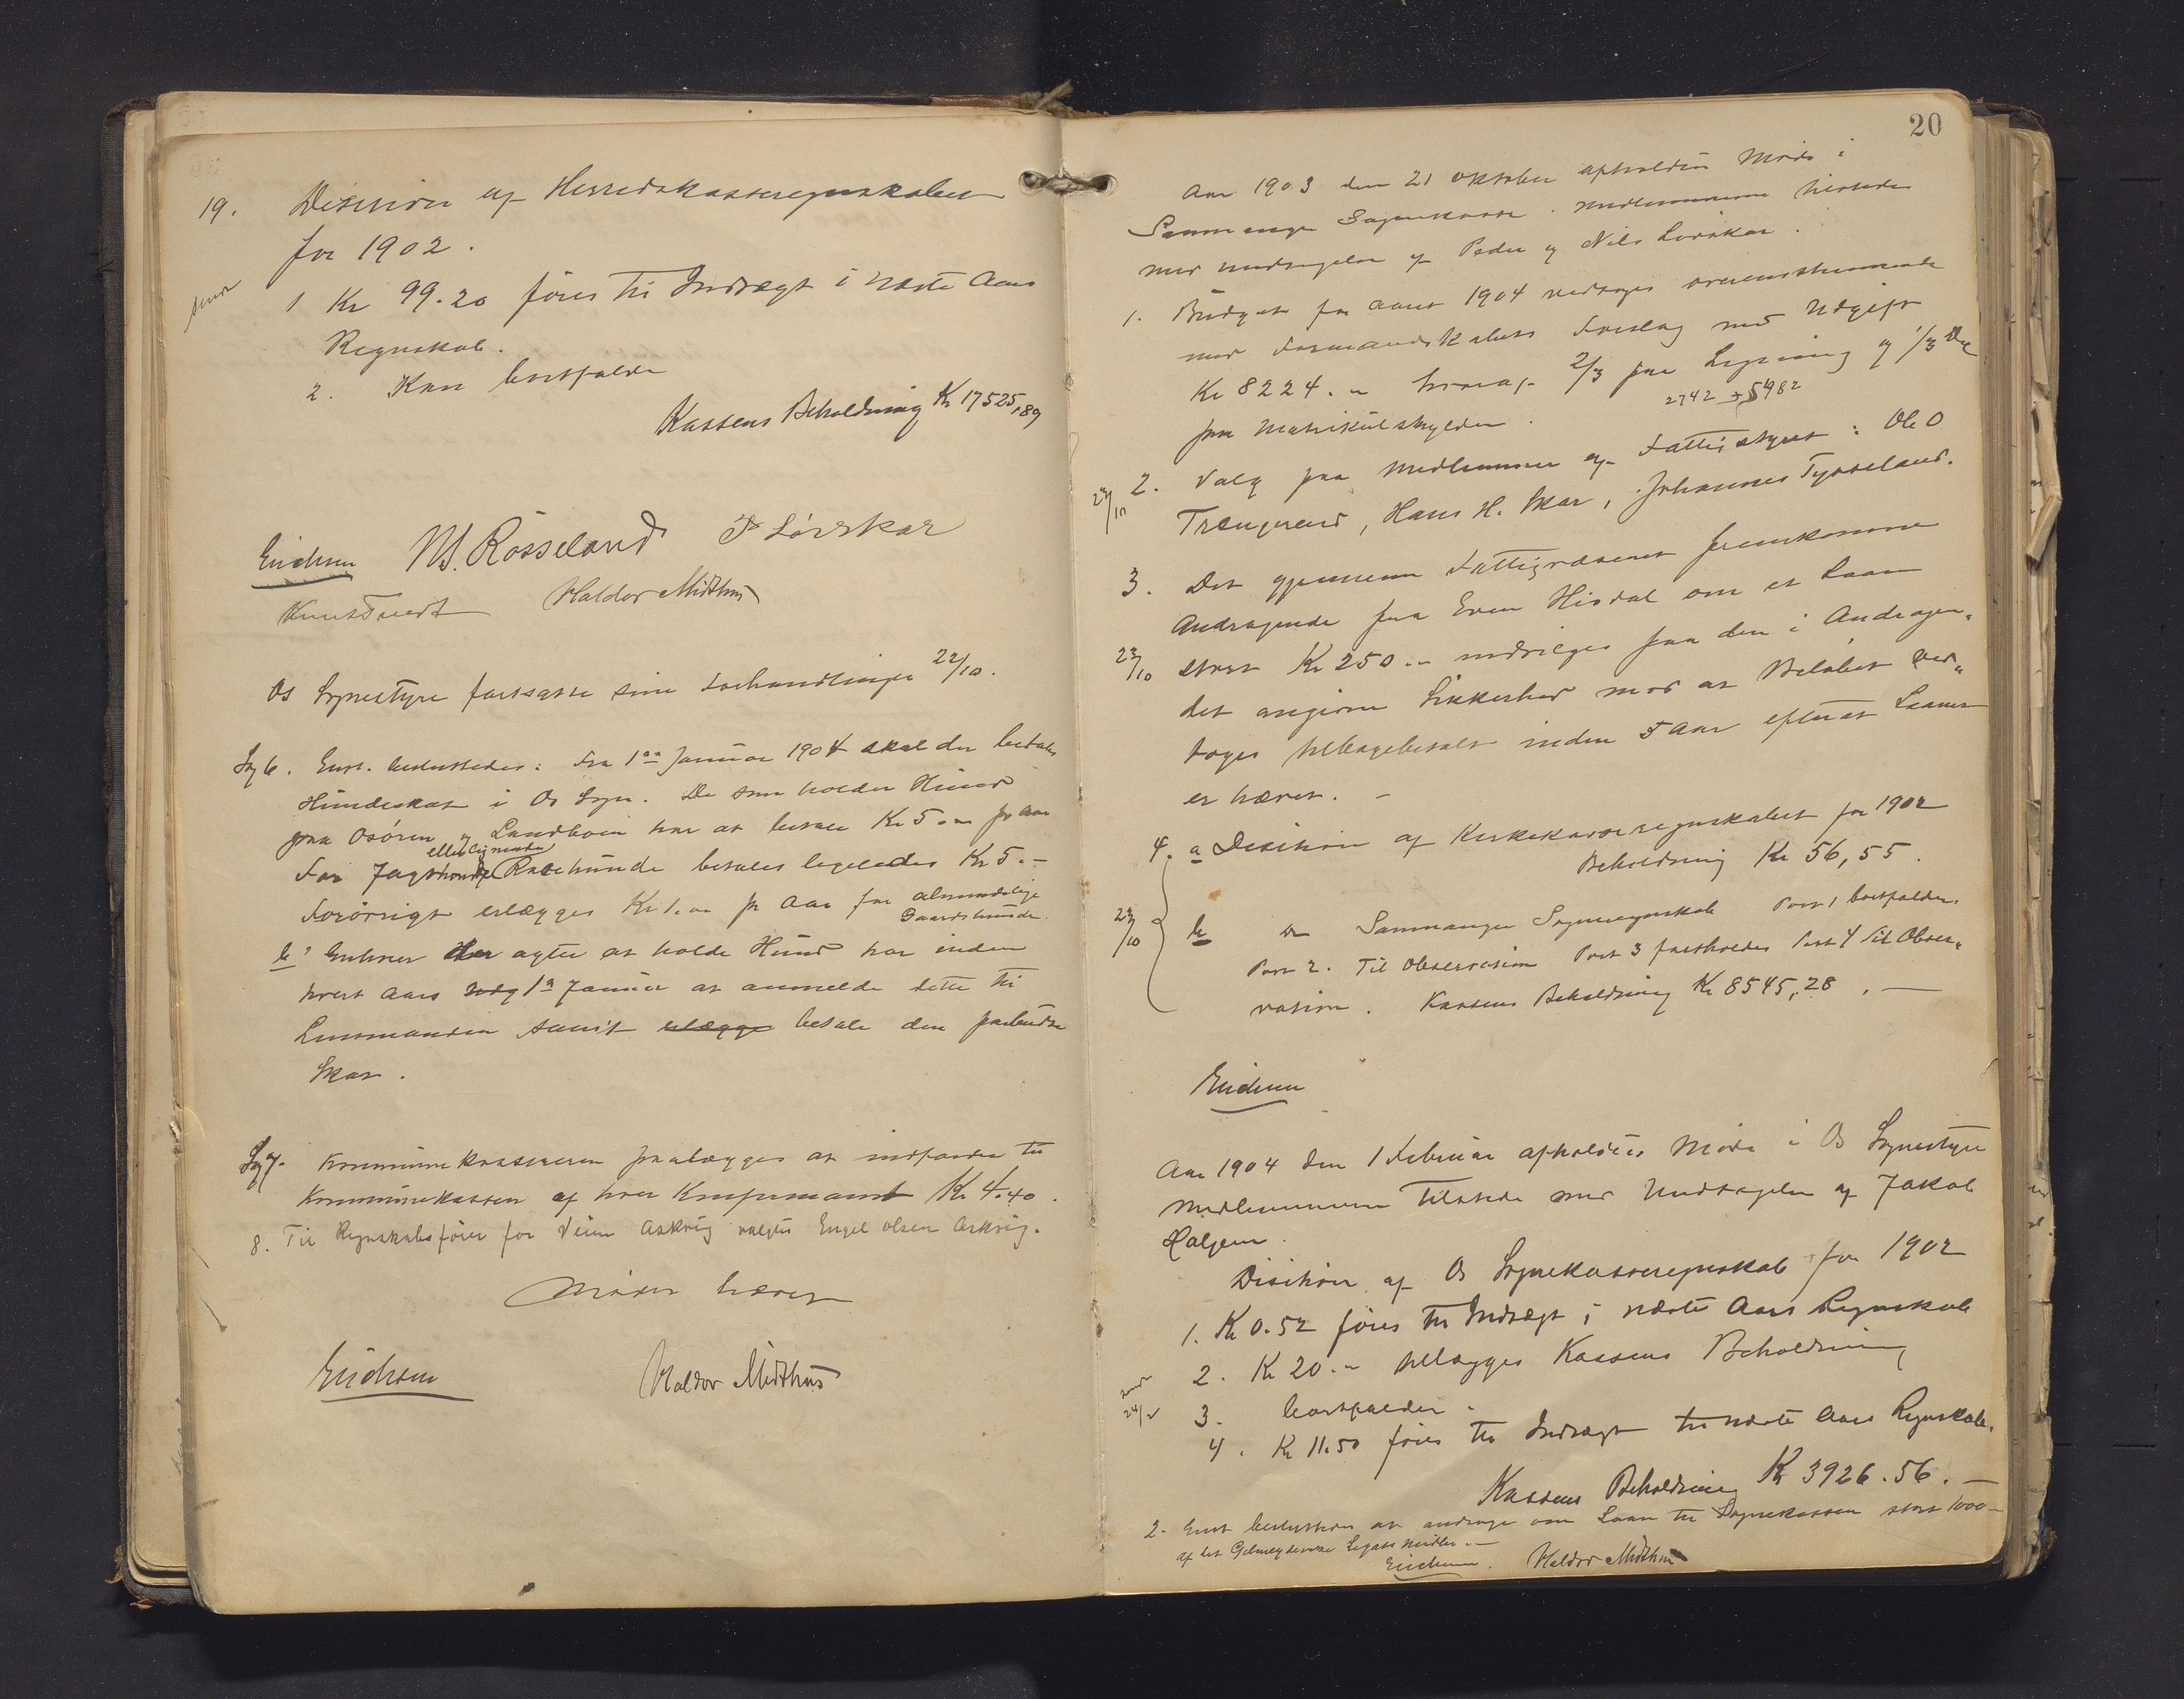 19. Desision af Herredskasseregnskabet
for 1902.
1 Kr 99.20 föres til Indtægt i næste Aars
Regnskab.
2. Kan bortfalde
Kassens Beholdning Kr 17525,89
Erichsen M. Rosseland P Lörskar
Knut Tveit Haldor Midthus
Os Sognestyre fortsatte sine Forhandlinger 22/10.
Sag 6. Enst. besluttedes: Fra 1ste Januar 1904 skal der betales
Hundeskat i Os Sogn. De som holder Hund
paa Osören og Landboin har at betale Kr 5.00 pr Aar
eller lignende
For Jagthunde Racehunde betales ligeledes Kr 5.-
Forövrigt erlægges Kr 1.00 pr Aar for almindelige
Gaardshunde.
b. Enhver der agter at holde Hund har inden
hvert Aars 1ste Januar at anmelde dette til
Lensmanden samt erlægge betale den paabudte
Skat.
Sag 7. Kommunekassereren paalægges at indfordre til
Kommunekassen af hver Kr 4.40.
8. Til Regnskabsförer for Veien Askvig valgtes Engel Olsen Askvig.
Mödet hævet
Erichsen Haldor Midthus
20
Aar 1903 den 21 Oktober afholdtes Möde i
Samnanger Sogn. Medlemmerne tilstede
med undtagelse af Peder og Nils Lörskar.
1. Budget for Aaret 1904 vedtoges overensstemmende
med Formandskabets Forslag med Udgift
Kr 8224.00 hvoraf 2/3 paa Ligning og 1/3 Del
2742 5482
paa Matrikulskylden.
2. Valg paa Medlemmer af Fattigstyret: Ole O
22/10
Trængereid, Hans H. Skar, Johannes Tysseland.
3. Det gjennem Fattigvæsenet fremkomne
Andragende fra Even Hisdal om et Laan
22/10
stort Kr 250.00 indvilges paa den i Andragen-
det angivne Sikkerhed mod at Belöbet ved-
tages tilbagebetalt inden 5 Aar efterat Laanet
er hævet. -
4. a Desision af Kirkekasseregnskabet for 1902
Beholdning Kr 56,55.
22/10
b Samnanger Sogneregnskab Post 1 bortfalder.
Post 2. Til Observation Post 3 fastholdes Post 4 til Obser-
vation. Kassens Beholdning Kr 8545,28. -
Erichsen
Aar 1904 den 1 Februar afholdtes Möde i Os Sognestyre
Medlemmerne tilstede med Undtagelse af Jakob
Haljem.
Desision af Os Sognekasseregnskab for 1902
1. Kr 0.52 föres til Indtægt i næste Aars Regnskab
2. Kr 20.00 tillægges Kassens Beholdning
24/2
3. bortfalder.
4. Kr 11.50 föres til Indtægt til næste Aars Regnskab.
Kassens Beholdning Kr 3926.56. -
2. Enst besluttedes at andrage om Laan til Sognekassen stort 1000-
af det Legats Midler. -
Erichsen. Haldor Midthus